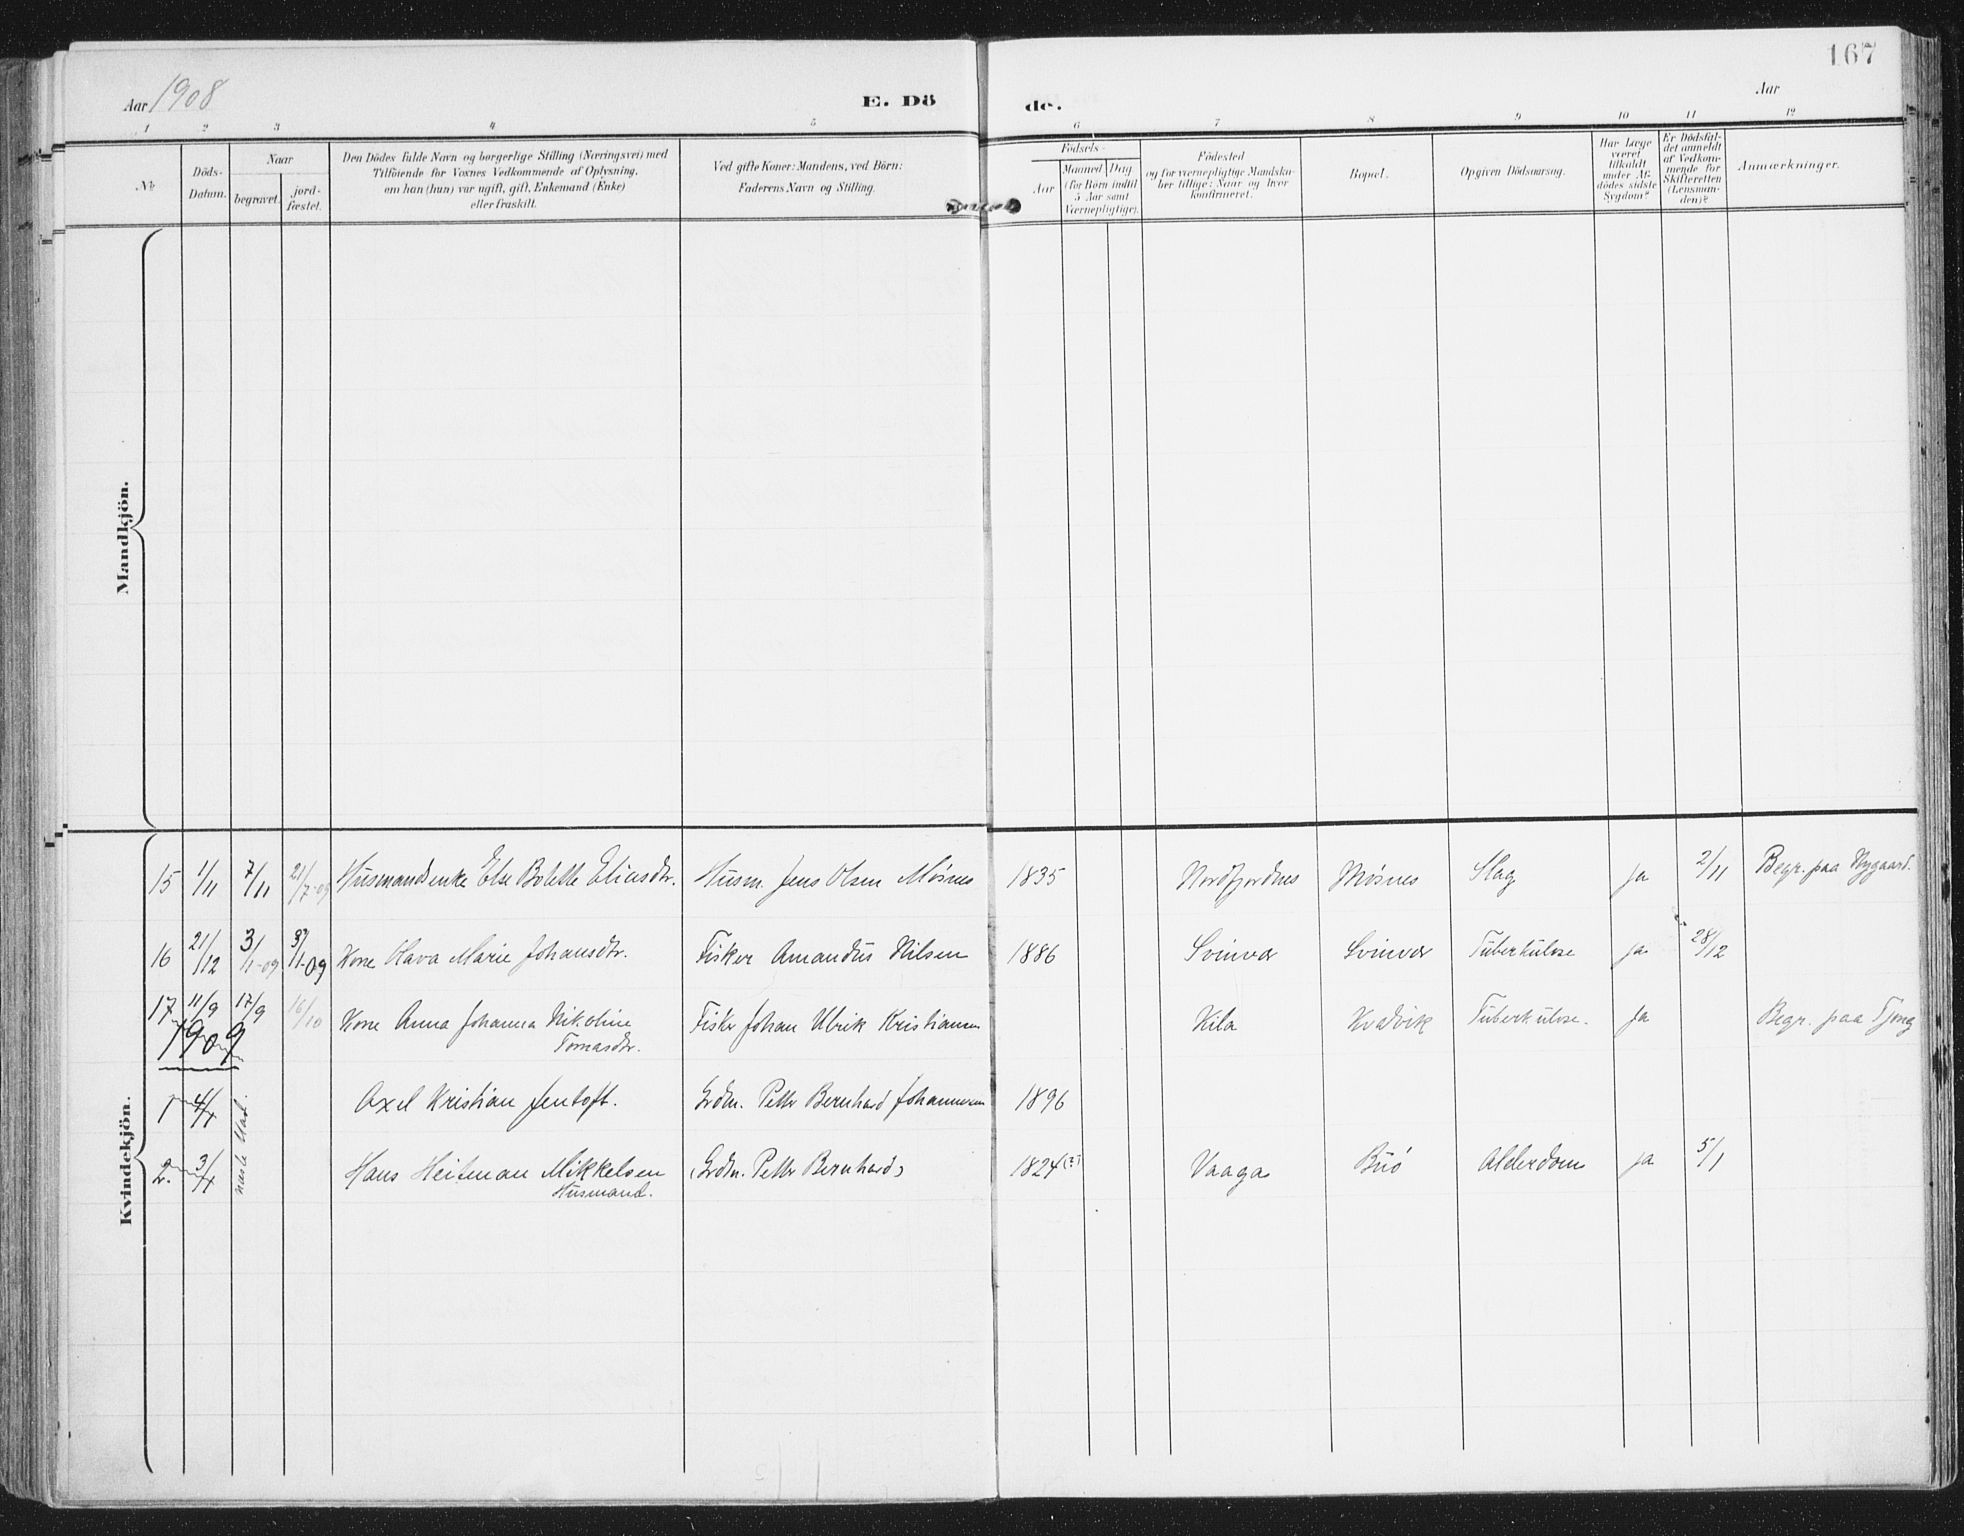 167
Aar 1908
E. Dö
de.
Aar
1 2 3 4 5 6 7 8 9 10 11 12
No
Döds-
Datum.
Naar
begravet.
jord-
fæstet.
Den Dödes fulde Navn og borgerlige Stilling (Næringsvei) med
Tilföiende for Voxnes Vedkommende af Oplysning,
om han (hun) var ugift, gift, Enkemand (Enke)
eller fraskilt.
Ved gifte Koner: Mandens, ved Börn:
Faderens Navn og Stilling.
Födsels-
Aar
Maaned
Dag
(for Börn indtil
5 Aar samt
Værnepligtige).
Födested
og for værnepligtige Mandska-
ber tillige: Naar og hvor
konfirmeret.
Bopæl.
Opgiven Dödsaarsag.
Har Læge
været
tilkaldt
under Af-
dödes sidste
Sygdom?
Er Dödsfal-
det anmeldt
af Vedkom-
mende for
Skifteretten
(Lensman-
den)?
Anmærkninger.
Mandkjön.
Kvindekjön.
15 1/11 7/11 21/7-09 Husmandsenke Else Bolette Eliasdtr. Husm. Jens Olsen Mösnes 1835 Nordfjordnes Mösnes Slag ja 2/11 Begr. paa Nygaard.
16 21/12 3/1-09 3/1-09 Kone Olava Marie Johansdtr. Fisker Amandus Nilsen 1886 Svinvær Svinvær Tuberkulose ja 28/12
17 11/9 17/9 16/10 Kone Anna Johanna Nikoline Fisker Johan Ulrik Kristiansen Kila Kvadvik Tuberkulose. ja Begr. paa Tjong
Tomasdtr.
1909
1 4/1 Axel Kristian Jentoft. Grdm. Petter Bernhard Johannesen 1896
næste blad.
2. 3/1 Hans Heitman Mikkelsen (Grdm. Petter Bernhard) 1824(?) Vaaga Buö Alderdom ja 5/1
Husmand.